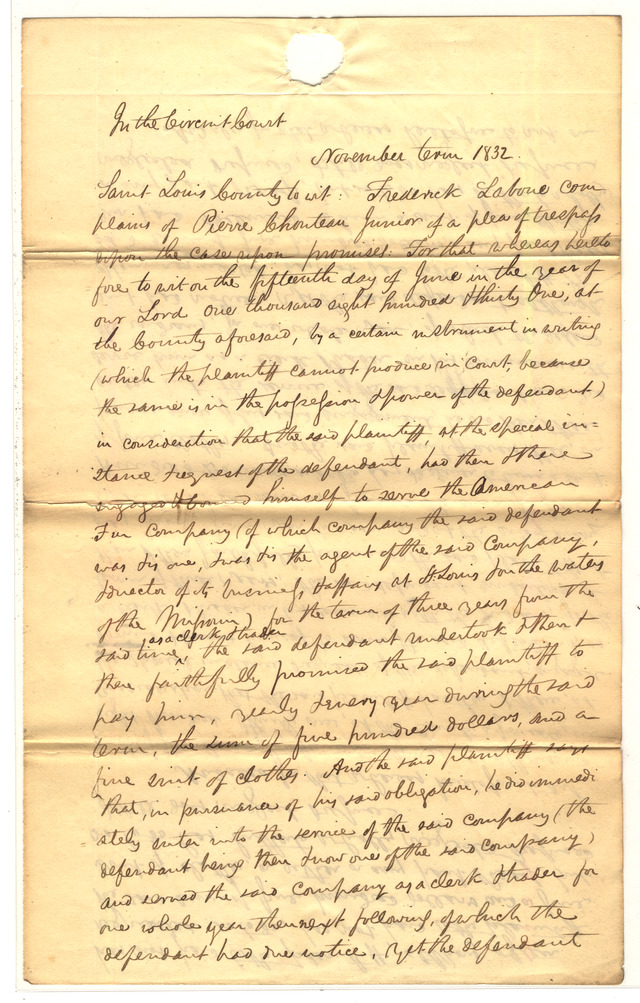 In the Circuit Court
November term 1832.
Saint Louis County to wit: Frederick Laboue com
plains of Pierre Chouteau Junior of a plea of trespass
upon the case upon promises. For that whereas hereto
fore to wit on the fifteenth day of June in the year of
our Lord One thousand eight hundred & thirty One, at
the County aforesaid, by a certain instrument in writing
(which the plaintiff cannot produce in Court, because
the same is in the possession & power of the defendant)
in consideration that the said plaintiff, at the special in=
stance & request of the defendant, had then & there
engaged & bound himself to serve the American
Fur Company (of which company the said defendant
was & is one, & was & is the agent of the said Company,
& director of its business & affairs at St. Louis & on the waters
of the Missouri) for the term of three years from the
said time, as a clerk & trader the said defendant undertook & then &
there faithfully promised the said plaintiff to
pay him, yearly & every year during the said
term, the sum of five hundred dollars, and a
fine suit of clothes. And the said plaintiff says
that, in pursuance of his said obligation, he did immedi
ately enter into the service of the said Company (the
defendant being then & now one of the said Company)
and served the said Company as a clerk & trader for
one whole year then next following, of which the
defendant had due notice, yet the defendant